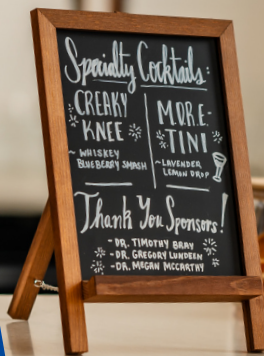 Specialty Cocktails:
CREAKY
KNEE
~ WHISKEY
BLUEBERRY SMASH
M.D.R.E.-
TINI
~ LAVENDER
LEMON DROP
Thank You Sponsors!
- DR. TIMOTHY BRAY
- DR. GREGORY LUNDEEN
- DR. MEGAN MCCARTHY